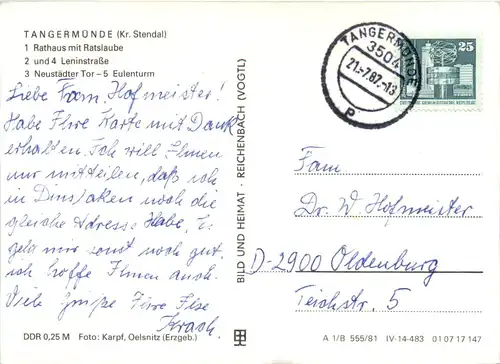 TANGERMÜNDE (Kr. Stendal)
1 Rathaus mit Ratslaube
2 und 4 Leninstraße
3 Neustädter Tor – 5 Eulenturm
Liebe Fam. Hofmeister!
Habe Ihre Karte mit Dank
erhalten. Ich will Ihnen
nur mitteilen, daß ich
in Dinslaken noch die
gleiche Adresse Habe, Es
geht mir sonst noch gut.
ich hoffe Ihnen auch.
Viele Grüße Ihre Else
DDR 0,25 M Foto: Karpf, Oelsnitz (Erzgeb.)
BILD UND HEIMAT · REICHENBACH (VOGTL)
TANGERMÜNDE
3504
21.-7.82.-18
P
25
DEUTSCHE DEMOKRATISCHE REPUBLIK
Fam
Dr. W Hofmeister
D-2900 Oldenburg
Teichstr. 5
A 1/B 555/81 IV-14-483 01 07 17 147